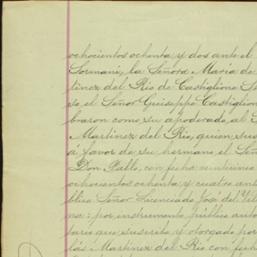 ochocientos ochenta y dos ante el
Sormani, la Señora Maria de
tinez del Rio de Castiglione S
es el Señor Guiseppe Castiglion
braron como su apoderado al S
Martinez del Rio, quien sus
á favor de su hermano el Señor
Don Pablo, con fecha veintiuno
ochocientos ochenta y cuatro ant
blico Señor Licenciado José del Vil
sa: por instrumento público auto
rio que suscribe y otorgado por
lás Martinez del Rio con fech